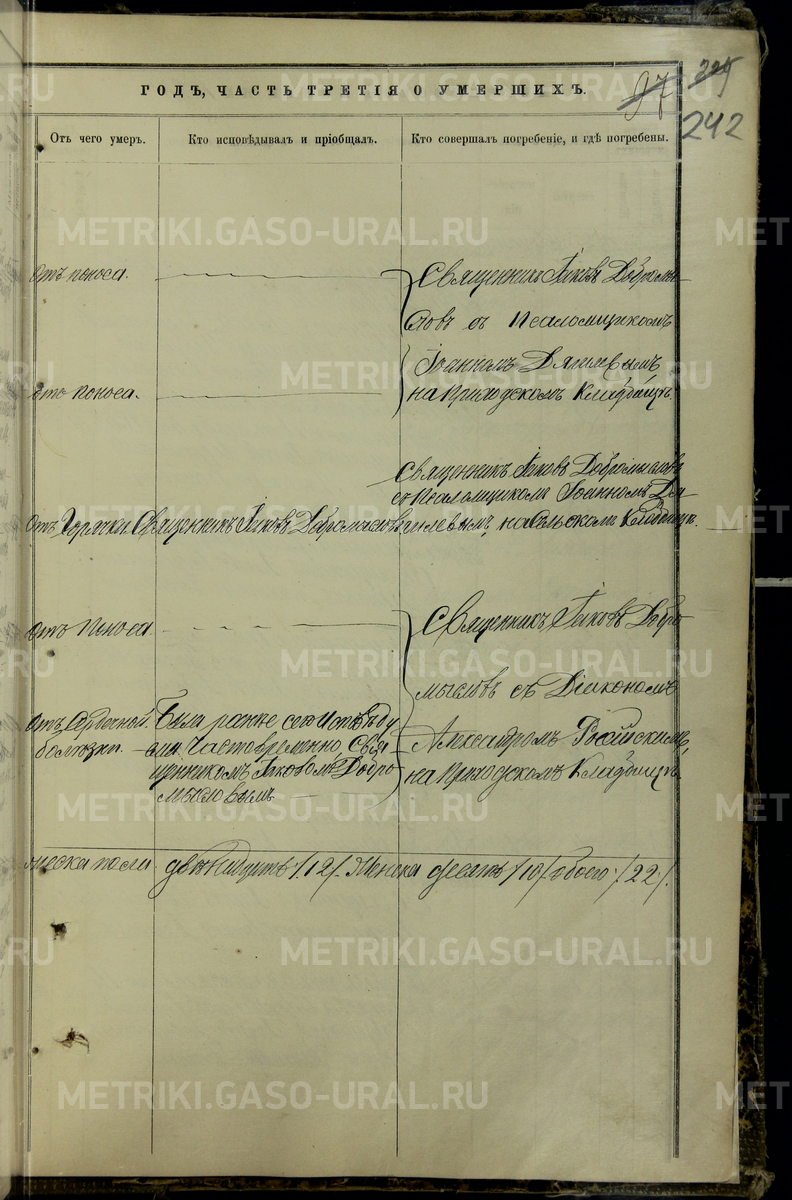 ГОДЪ, ЧАСТЬ ТРЕТІЯ О УМЕРШИХЪ.
97
242
Отъ чего умеръ.
Кто исповѣдывалъ и пріобщалъ.
Кто совершалъ погребеніе, и гдѣ погребены.
Отъ поноса.
Священникъ Іаковъ Добромы
словъ съ Псаломщикомъ
Іоанномъ Дягилевымъ
на Приходскомъ Кладбищѣ.
Отъ поноса.
Священникъ Іаковъ Добромысловъ
съ Псаломщикомъ Іоанномъ Дя
Отъ Горячки Священникъ Іаковъ Добромысловъ гилевымъ, на Сельскомъ Кладбищѣ.
Отъ Поноса
Священникъ Іаковъ Добро
мысловъ съ Діякономъ
Александромъ
на Приходскомъ Кладбищѣ
Отъ Сердечной
болѣзни.
Была ранѣе сего Исповѣду
Частовременно Свя
щенникомъ Іаковомъ Добро
мысловымъ
пола
/12/. Женска десять /10/. обоего /22/.
METRIKI.GASO-URAL.RU